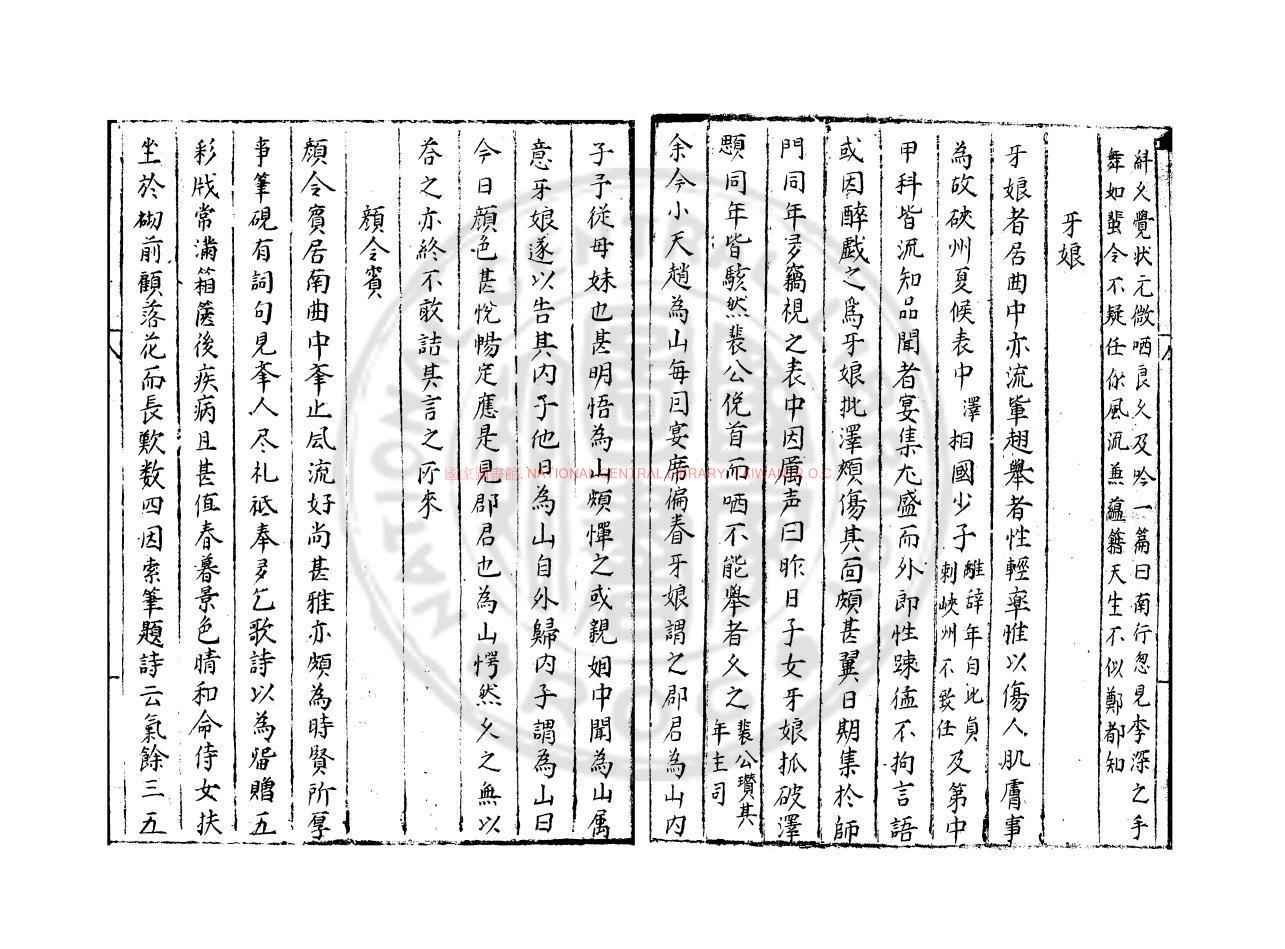 斜久覺狀元微哂良久及吟一篇曰南行忽見李深之手
舞如蜚令不疑任你風流兼蘊籍天生不似鄭都知
牙娘
牙娘者居曲中亦流輩翹舉者性輕率惟以傷人肌膚事
為故硤州夏侯表中澤相國少子離辞年自此貞刺峽州不致任及第中
甲科皆流知品聞者宴集尤盛而外郎性踈猛不拘言語
或因醉戲之為牙娘批澤頰傷其面頗甚翼日期集於師
門同年多竊視之表中因厲声曰昨日子女牙娘抓破澤
顋同年皆駭然裴公俛首而哂不能舉者久之裴公瓚其年主司
余今小天趙為山每因宴席偏眷牙娘謂之郡君為山內
子予従母妹也甚明悟為山頗憚之或親姻中聞為山属
意牙娘遂以告其内子他日為山自外歸内子謂為山曰
今日顔色甚悅暢定應是見郡君也為山愕然久之無以
荅之亦終不敢詰其言之所來
顔令賓
顔令賓居南曲中举止風流好尚甚雅亦頗為時賢所厚
事筆硯有詞句見举人尽礼祗奉多乞歌詩以為留贈五
彩牋常滿箱篋後疾病且甚值春暮景色晴和命侍女扶
坐於砌前顧落花而長歎数四因索筆題詩云氣餘三五
國家圖書館, NATIONAL CENTRAL LIBRARY, TAIWAN, R.O.C